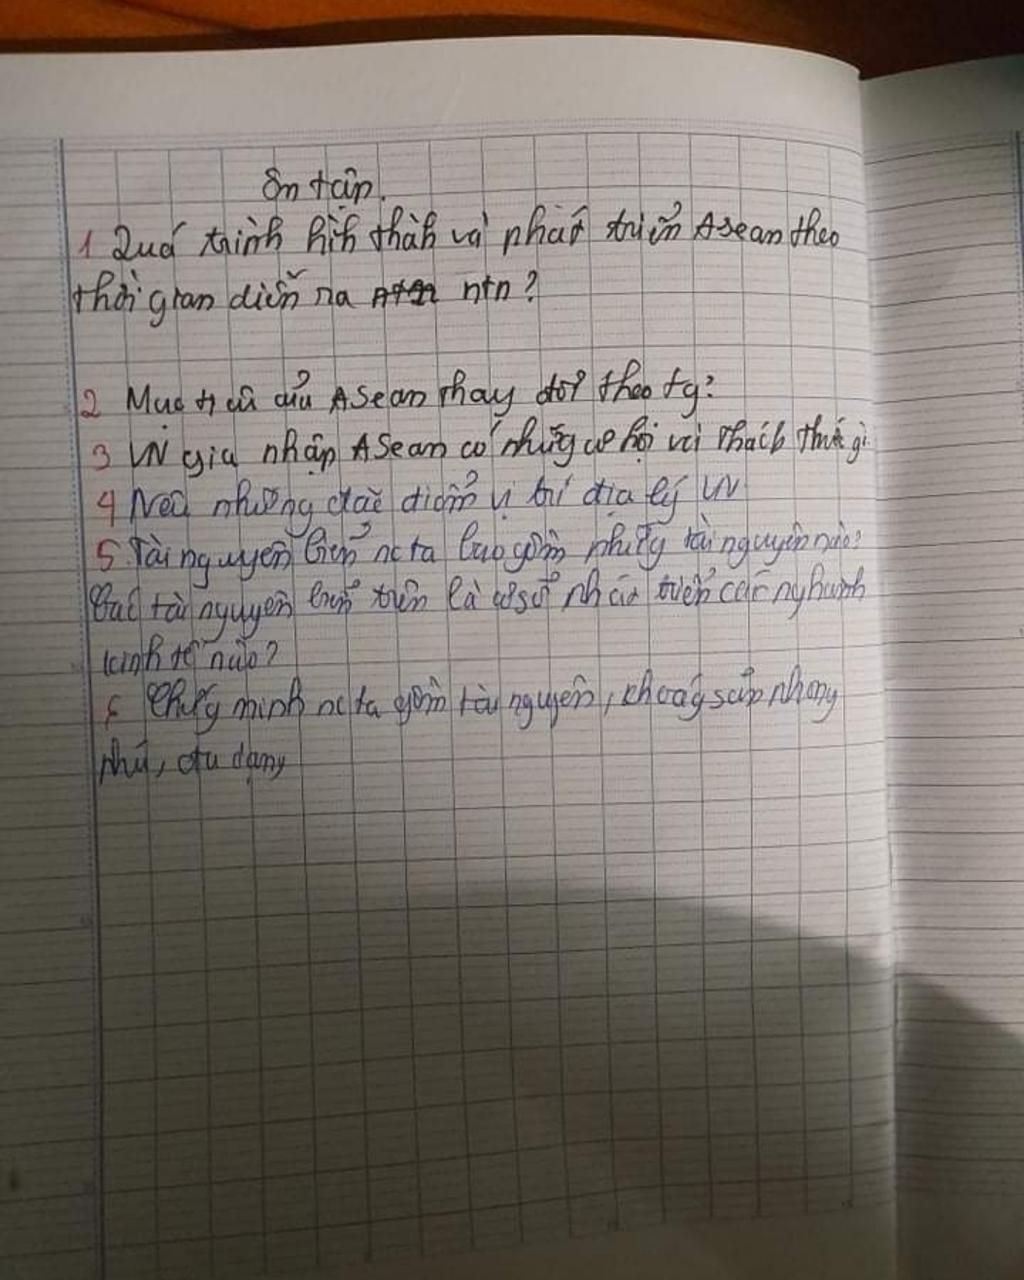 Ôn tập.
1 Quá trình hìh thàh và phát triển Asean theo
thời gian diễn ra ntn?
2 Mục tiêu của ASean thay đổi theo tg?
3 VN gia nhập ASean có nhữg cơ hội và thách thức gì
4 Nêu những đặc điểm vị trí địa lý VN
5 Tài nguyên biển nc ta bao gồm nhữg tài nguyên nào?
Các tài nguyên biển trên là cơ sở phát triển các nghành
kinh tế nào?
6 Chứg minh nc ta gồm tài nguyên, khoág sản phong
phú, đa dạng